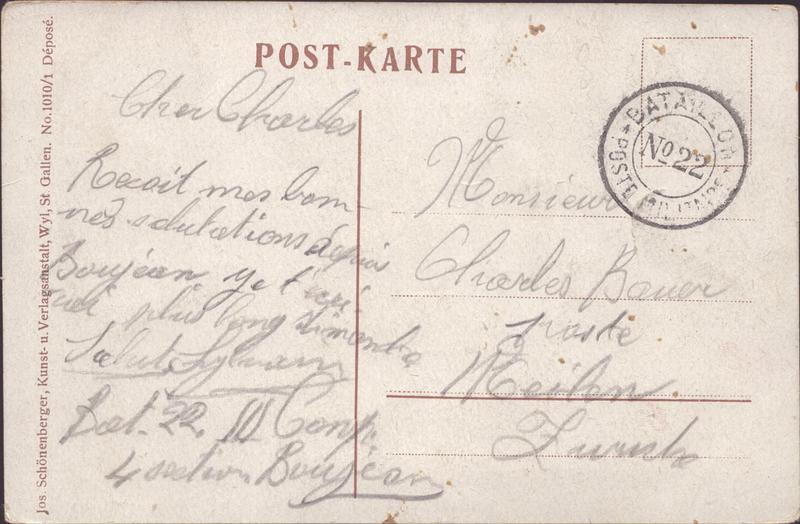 POST-KARTE
Jos. Schönenberger, Kunst- u. Verlagsanstalt, Wyl, St Gallen. No. 1010/1 Déposé.
BATAILLON
No 22
POSTE MILITAIRE
Cher Charles
Recoit mes bon-
nes salutations depuis
Boujéan
plus long dimanche
Salut Sylvain
Bat. 22. III Comp.
4 section Boujéan
Monsieur
Charles Bauer
Poste
Meilen
Zurich